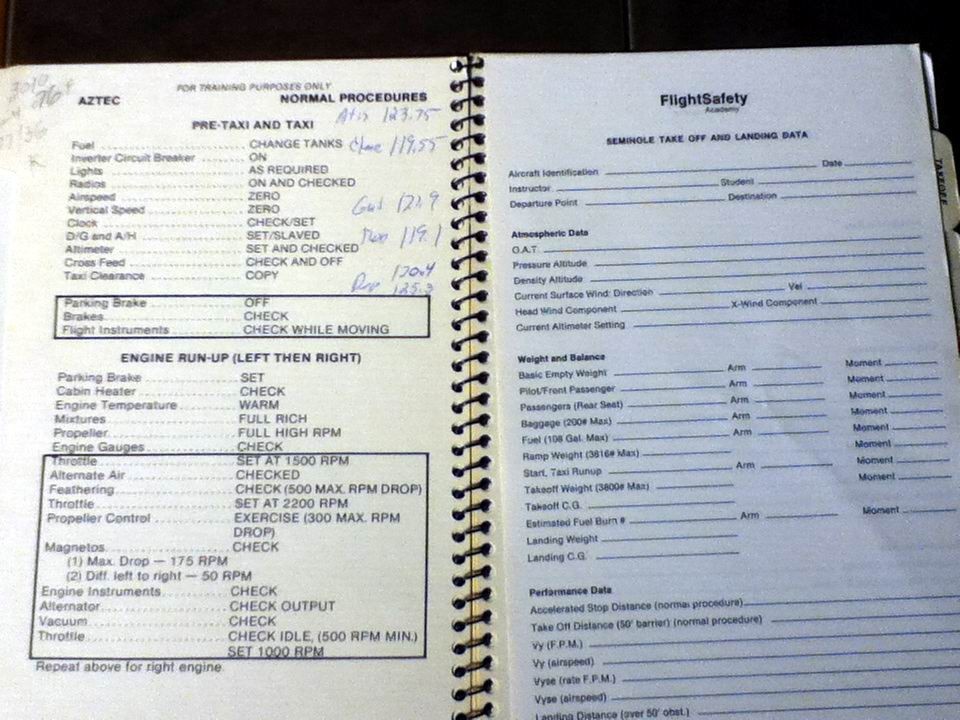 FOR TRAINING PURPOSES ONLY
AZTEC NORMAL PROCEDURES
Atis 123.75
PRE-TAXI AND TAXI
Fuel CHANGE TANKS
119.55
Inverter Circuit Breaker ON
Lights AS REQUIRED
Radios ON AND CHECKED
Airspeed ZERO
Vertical Speed ZERO
121.9
Clock CHECK/SET
D/G and A/H SET/SLAVED
119.1
Altimeter SET AND CHECKED
Cross Feed CHECK AND OFF
Taxi Clearance COPY
120.4
125.3
Parking Brake OFF
Brakes CHECK
Flight Instruments CHECK WHILE MOVING
ENGINE RUN-UP (LEFT THEN RIGHT)
Parking Brake SET
Cabin Heater CHECK
Engine Temperature WARM
Mixtures FULL RICH
Propeller FULL HIGH RPM
Engine Gauges CHECK
Throttle SET AT 1500 RPM
Alternate Air CHECKED
Feathering CHECK (500 MAX. RPM DROP)
Throttle SET AT 2200 RPM
Propeller Control EXERCISE (300 MAX. RPM
DROP)
Magnetos CHECK
(1) Max. Drop — 175 RPM
(2) Diff. left to right — 50 RPM
Engine Instruments CHECK
Alternator CHECK OUTPUT
Vacuum CHECK
Throttle CHECK IDLE, (500 RPM MIN.)
SET 1000 RPM
Repeat above for right engine.
FlightSafety
Academy
SEMINOLE TAKE OFF AND LANDING DATA
Aircraft Identification Date
Instructor Student
Departure Point Destination
Atmospheric Data
O.A.T.
Pressure Altitude
Density Altitude
Current Surface Wind: Direction Vel
Head Wind Component X-Wind Component
Current Altimeter Setting
Weight and Balance
Basic Empty Weight Arm Moment
Pilot/Front Passenger Arm Moment
Passengers (Rear Seat) Arm Moment
Baggage (200# Max) Arm Moment
Fuel (108 Gal. Max) Arm Moment
Ramp Weight (3816# Max) Moment
Start, Taxi Runup Arm Moment
Takeoff Weight (3800# Max) Moment
Takeoff C.G.
Estimated Fuel Burn # Arm Moment
Landing Weight
Landing C.G.
Performance Data
Accelerated Stop Distance (normal procedure)
Take Off Distance (50' barrier) (normal procedure)
Vy (F.P.M.)
Vy (airspeed)
Vyse (rate F.P.M.)
Vyse (airspeed)
Landing Distance (over 50' obst.)
TAKEOFF